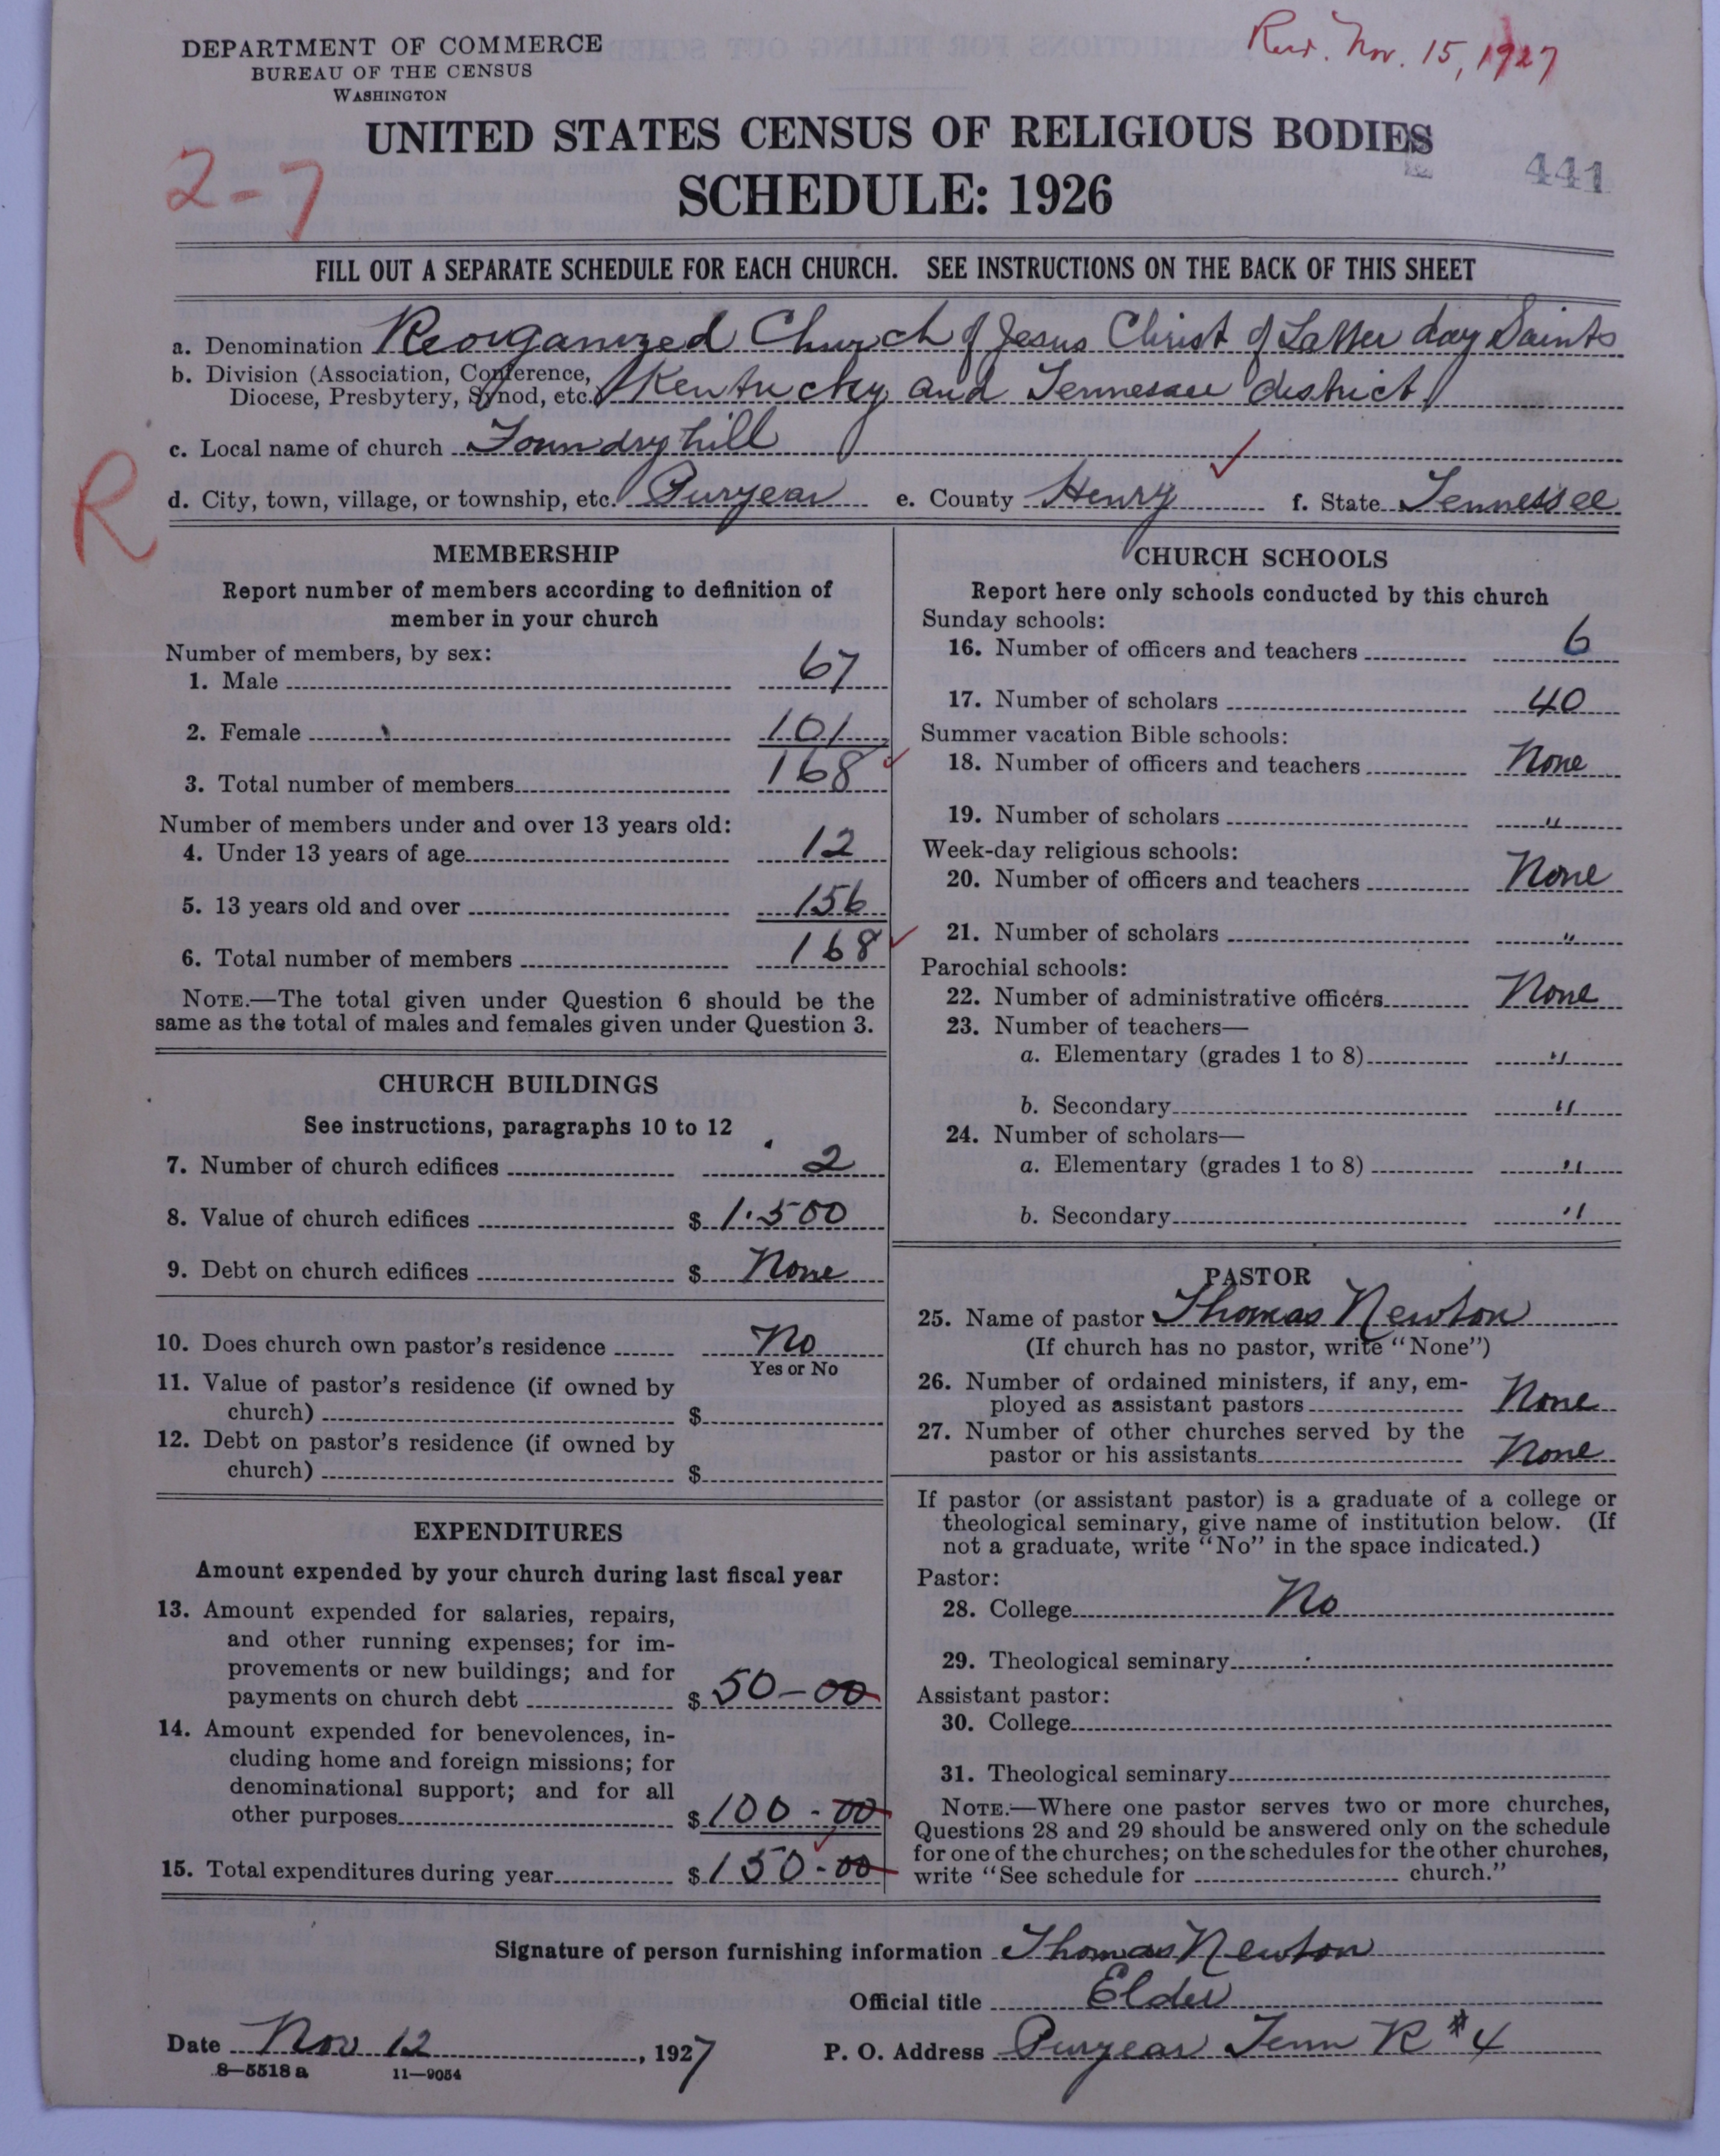 DEPARTMENT OF COMMERCE
BUREAU OF THE CENSUS
WASHINGTON
Nov. 15, 1927
UNITED STATES CENSUS OF RELIGIOUS BODIES
2-7
441
SCHEDULE: 1926
FILL OUT A SEPARATE SCHEDULE FOR EACH CHURCH. SEE INSTRUCTIONS ON THE BACK OF THIS SHEET
a. Denomination Reorganized Church of Jesus Christ of Latter day Saints
b. Division (Association, Conference,
Diocese, Presbytery, Synod, etc.) Kentucky and Tennessee district
c. Local name of church Foundry hill
R
d. City, town, village, or township, etc. Puryear e. County Henry f. State Tennessee
MEMBERSHIP
Report number of members according to definition of
member in your church
Number of members, by sex:
1. Male 67
2. Female 101
3. Total number of members 168
Number of members under and over 13 years old:
4. Under 13 years of age 12
5. 13 years old and over 156
6. Total number of members 168
NOTE.—The total given under Question 6 should be the
same as the total of males and females given under Question 3.
CHURCH BUILDINGS
See instructions, paragraphs 10 to 12
7. Number of church edifices 2
8. Value of church edifices $ 1.500
9. Debt on church edifices $ None
10. Does church own pastor's residence No
Yes or No
11. Value of pastor's residence (if owned by
church) $
12. Debt on pastor's residence (if owned by
church) $
EXPENDITURES
Amount expended by your church during last fiscal year
13. Amount expended for salaries, repairs,
and other running expenses; for im-
provements or new buildings; and for
payments on church debt $ 50-00
14. Amount expended for benevolences, in-
cluding home and foreign missions; for
denominational support; and for all
other purposes $ 100-00
15. Total expenditures during year $ 150-00
CHURCH SCHOOLS
Report here only schools conducted by this church
Sunday schools:
16. Number of officers and teachers 6
17. Number of scholars 40
Summer vacation Bible schools:
18. Number of officers and teachers None
19. Number of scholars "
Week-day religious schools:
20. Number of officers and teachers None
21. Number of scholars "
Parochial schools:
22. Number of administrative officers None
23. Number of teachers—
a. Elementary (grades 1 to 8) "
b. Secondary "
24. Number of scholars—
a. Elementary (grades 1 to 8) "
b. Secondary "
PASTOR
25. Name of pastor Thomas Newton
(If church has no pastor, write "None")
26. Number of ordained ministers, if any, em-
ployed as assistant pastors None
27. Number of other churches served by the
pastor or his assistants None
If pastor (or assistant pastor) is a graduate of a college or
theological seminary, give name of institution below. (If
not a graduate, write "No" in the space indicated.)
Pastor:
28. College No
29. Theological seminary
Assistant pastor:
30. College
31. Theological seminary
NOTE.—Where one pastor serves two or more churches,
Questions 28 and 29 should be answered only on the schedule
for one of the churches; on the schedules for the other churches,
write "See schedule for church."
Signature of person furnishing information Thomas Newton
Official title Elder
Date Nov 12, 1927 P. O. Address Puryear Tenn R #4
8—5518 a 11—9054